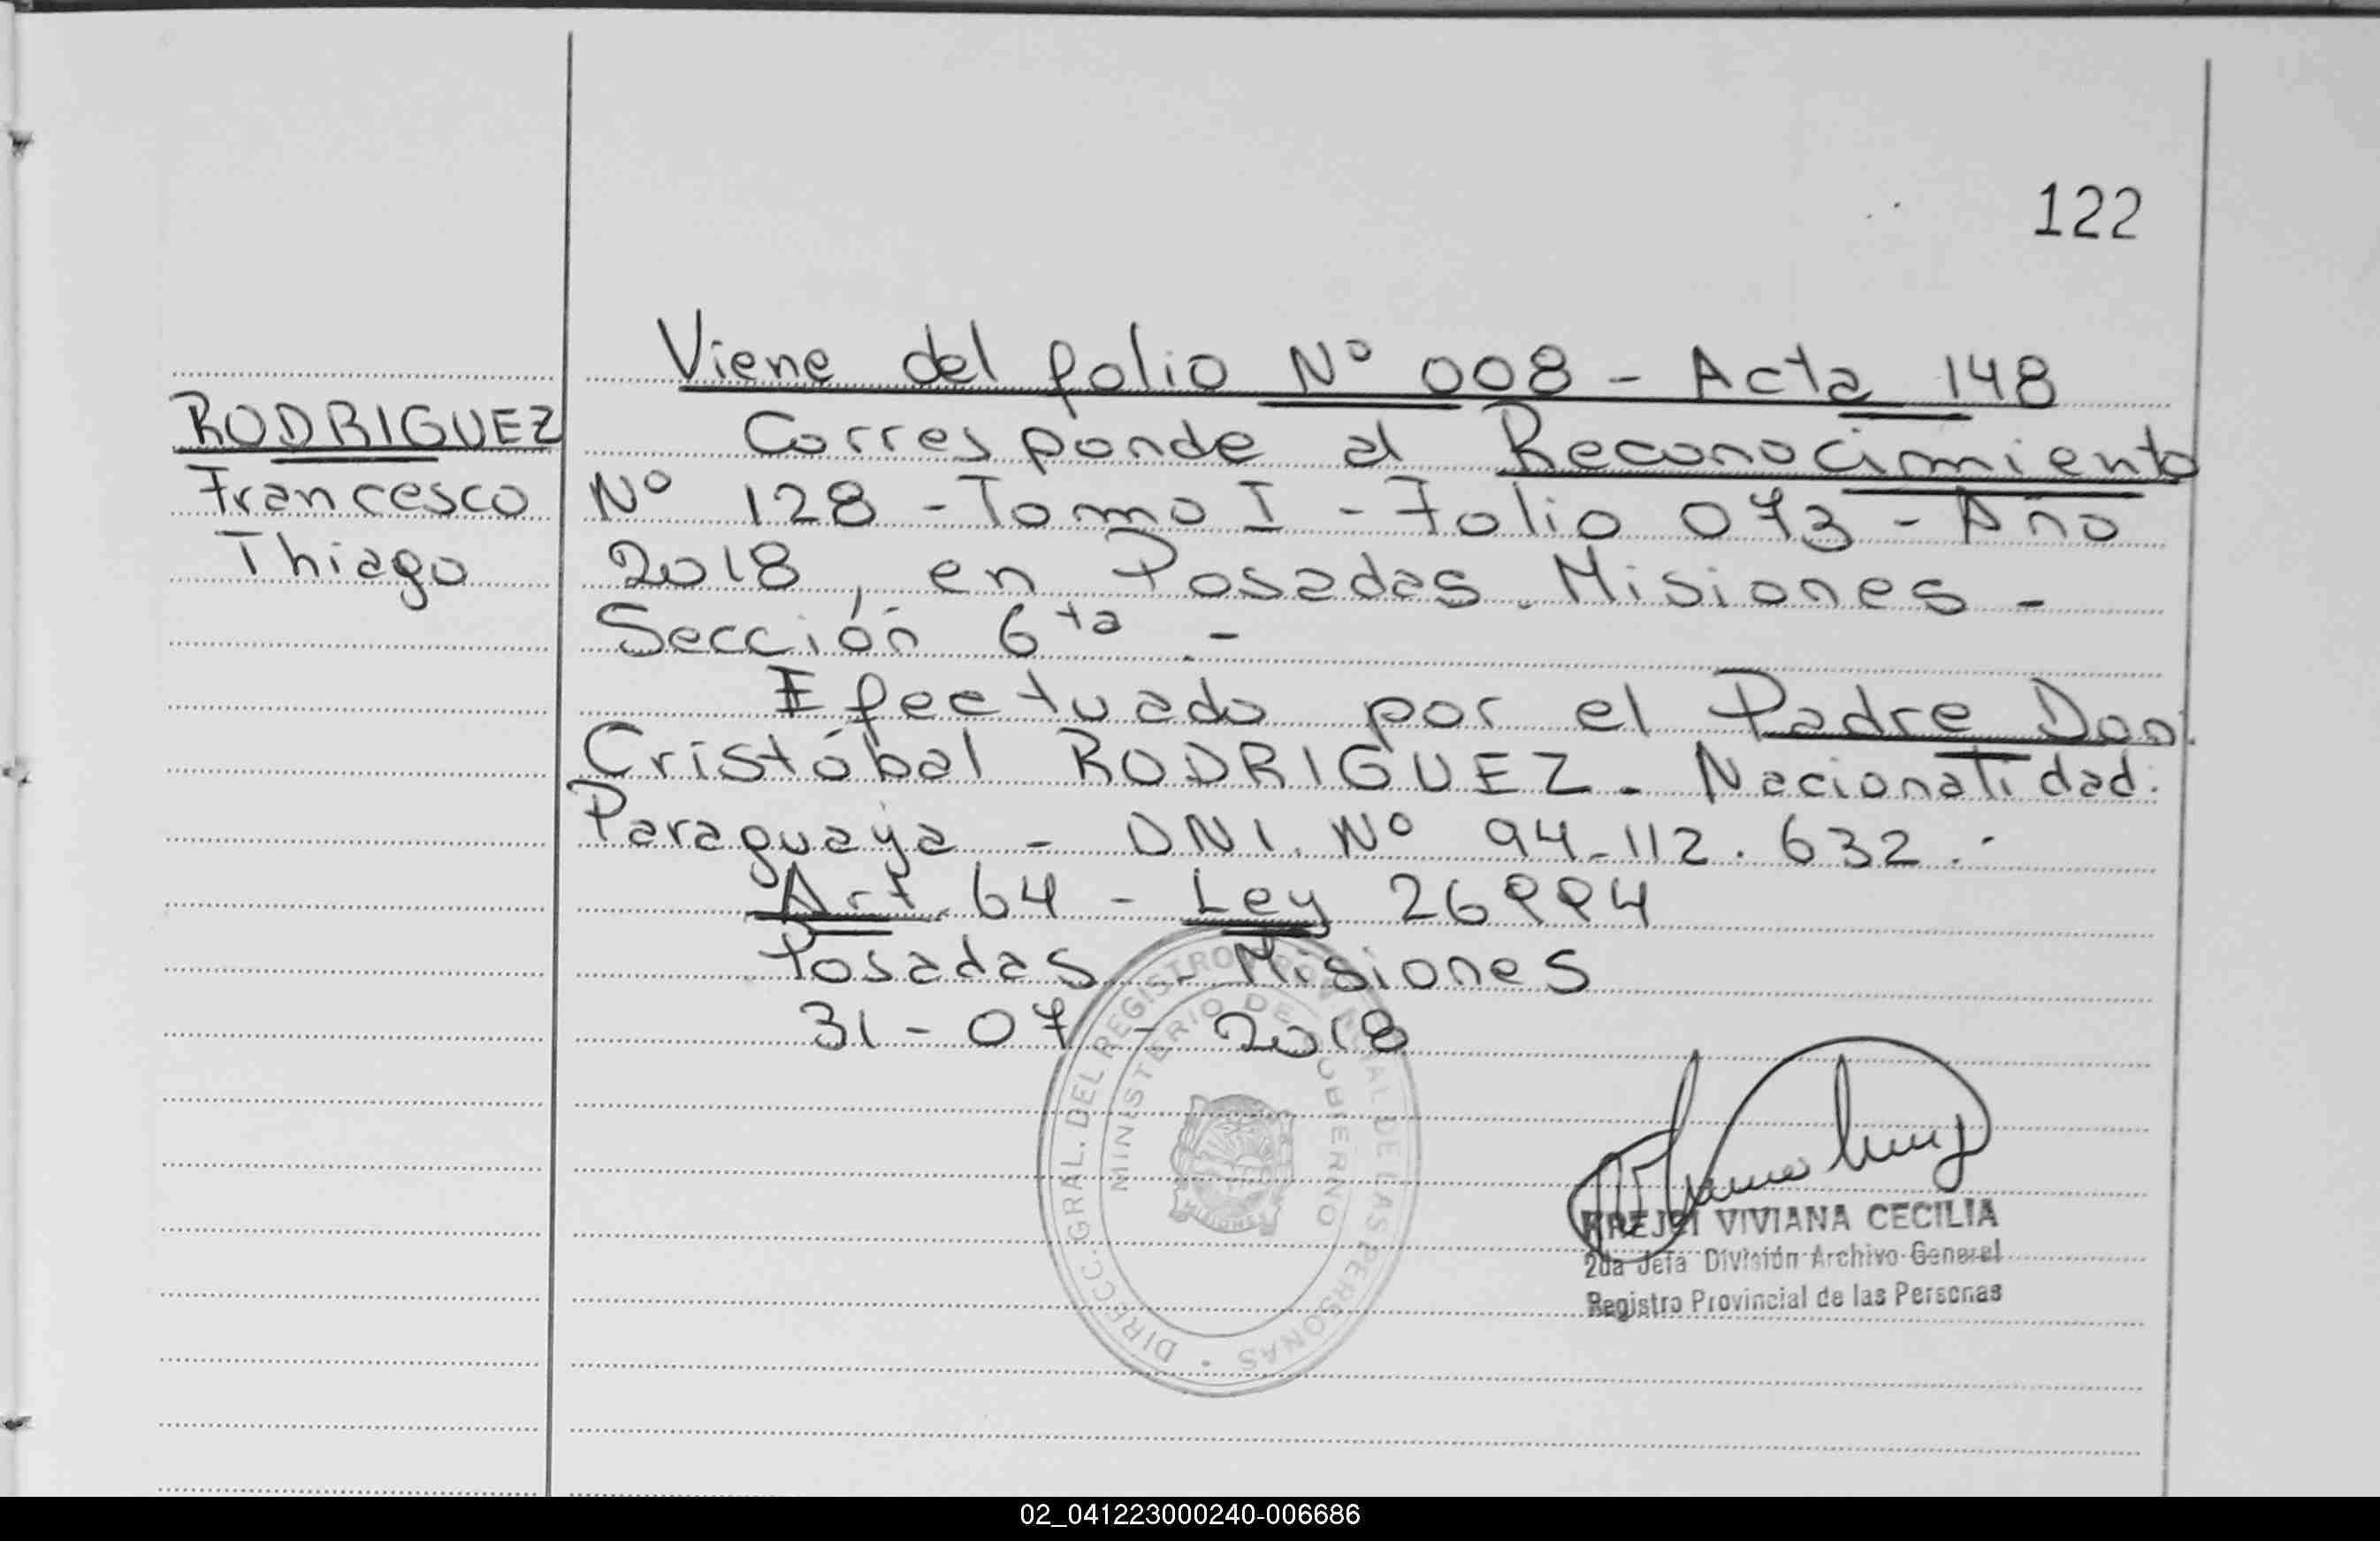 122
Viene del folio Nº 008 - Acta 148
RODRIGUEZ
Francesco
Thiago
Corresponde al Reconocimiento
Nº 128 - Tomo I - Folio 073 - Año
2018, en Posadas. Misiones -
Sección 6ta .-
Efectuado por el Padre Don:
Cristóbal RODRIGUEZ. Nacionalidad:
Paraguaya - DNI. Nº 94.112.632.-
Art. 64 - Ley 26994
Posadas - Misiones
31 - 07 - 2018
DIRECC. GRAL. DEL REGISTRO PROVINCIAL DE LAS PERSONAS
MINISTERIO DE GOBIERNO
MISIONES
VIVIANA CECILIA
2da Jefa División Archivo General
Registro Provincial de las Personas
02_041223000240-006686